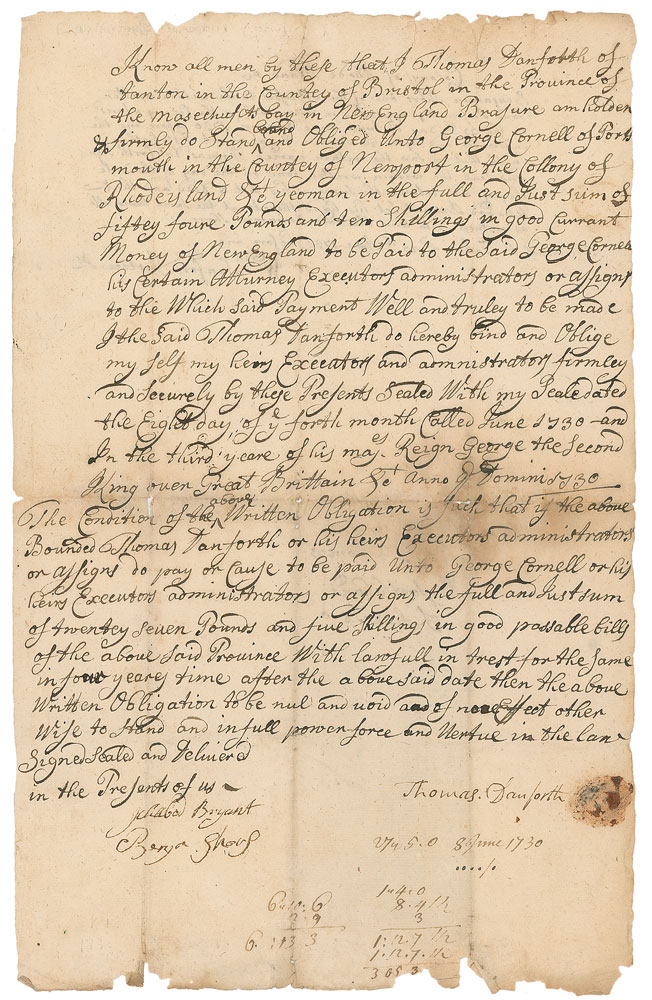 Know all men by these that I Thomas Danforth of
tanton in the Countey of Bristol in the Province of
the masechusits bay in New England Brasure am holden
& firmly do Stand bound and Obliged Unto George Cornell of Ports
mouth in the Countey of Newport in the Collony of
Rhode island &c yeoman in the full and Just sum of
fiftey foure Pounds and ten Shillings in good Currant
Money of New England to be Paid to the Said George Cornell
his Certain Atturney Executors administrators or assigns
to the Which said Payment Well and truley to be made
I the Said Thomas Danforth do hereby bind and Oblige
my self my heirs Executors and admnistrators firmley
and Securely by these Presents Sealed With my Seale dated
the Eight day of ye forth month Called June 1730 and
In the third yeare of his majes Reign George the Second
King over Great Brittain &c Anno Domini 1730
The Condition of the above Written Obligation is Such that if the above
Bounded Thomas Danforth or his heirs Executors administrators
or assigns do pay or Cause to be paid Unto George Cornell or his
heirs Executors administrators or assigns the full and Just sum
of twentey Seven Pounds and five Shillings in good passable bills
of the above said Province With lawfull in trest for the Same
in four years time after the above said date then the above
Written Obligation to be nul and void and of none Effect other
Wise to Stand and in full power force and Vertue in the law
Signed Sealed and Deliverd
in the Presents of us
Thomas Danforth
Ichabod Bryant
Benja
27 5 0 8 June 1730
1 4 0
8 4 1/2
3
6 10 6
2 9
6 13 3
1 12 7 1/2
1 12 7 1/2
3 05 3